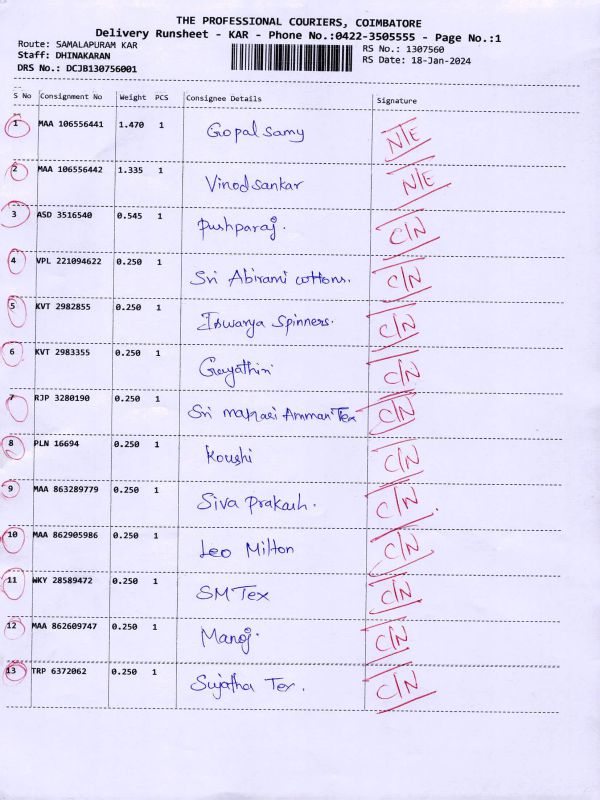 THE PROFESSIONAL COURIERS, COIMBATORE
Delivery Runsheet - KAR - Phone No.:0422-3505555 - Page No.:1
Route: SAMALAPURAM KAR RS No.: 1307560
Staff: DHINAKARAN RS Date: 18-Jan-2024
DRS No.: DCJB130756001
S No Consignment No Weight PCS Consignee Details Signature
1 MAA 106556441 1.470 1 Gopal Samy N/E
2 MAA 106556442 1.335 1 Vinodsankar N/E
3 ASD 3516540 0.545 1 Pushparaj. C/N
4 VPL 221094622 0.250 1 Sri Abirami cottons. C/N
5 KVT 2982855 0.250 1 Iswarya Spinners. C/N
6 KVT 2983355 0.250 1 Gayathiri C/N
7 RJP 3280190 0.250 1 Sri Amman Tex C/N
8 PLN 16694 0.250 1 Koushi C/N
9 MAA 863289779 0.250 1 Siva Prakash. C/N
10 MAA 862905986 0.250 1 Leo Milton C/N
11 WKY 28589472 0.250 1 SM Tex C/N
12 MAA 862609747 0.250 1 Manoj. C/N
13 TRP 6372062 0.250 1 Sujatha Tex. C/N